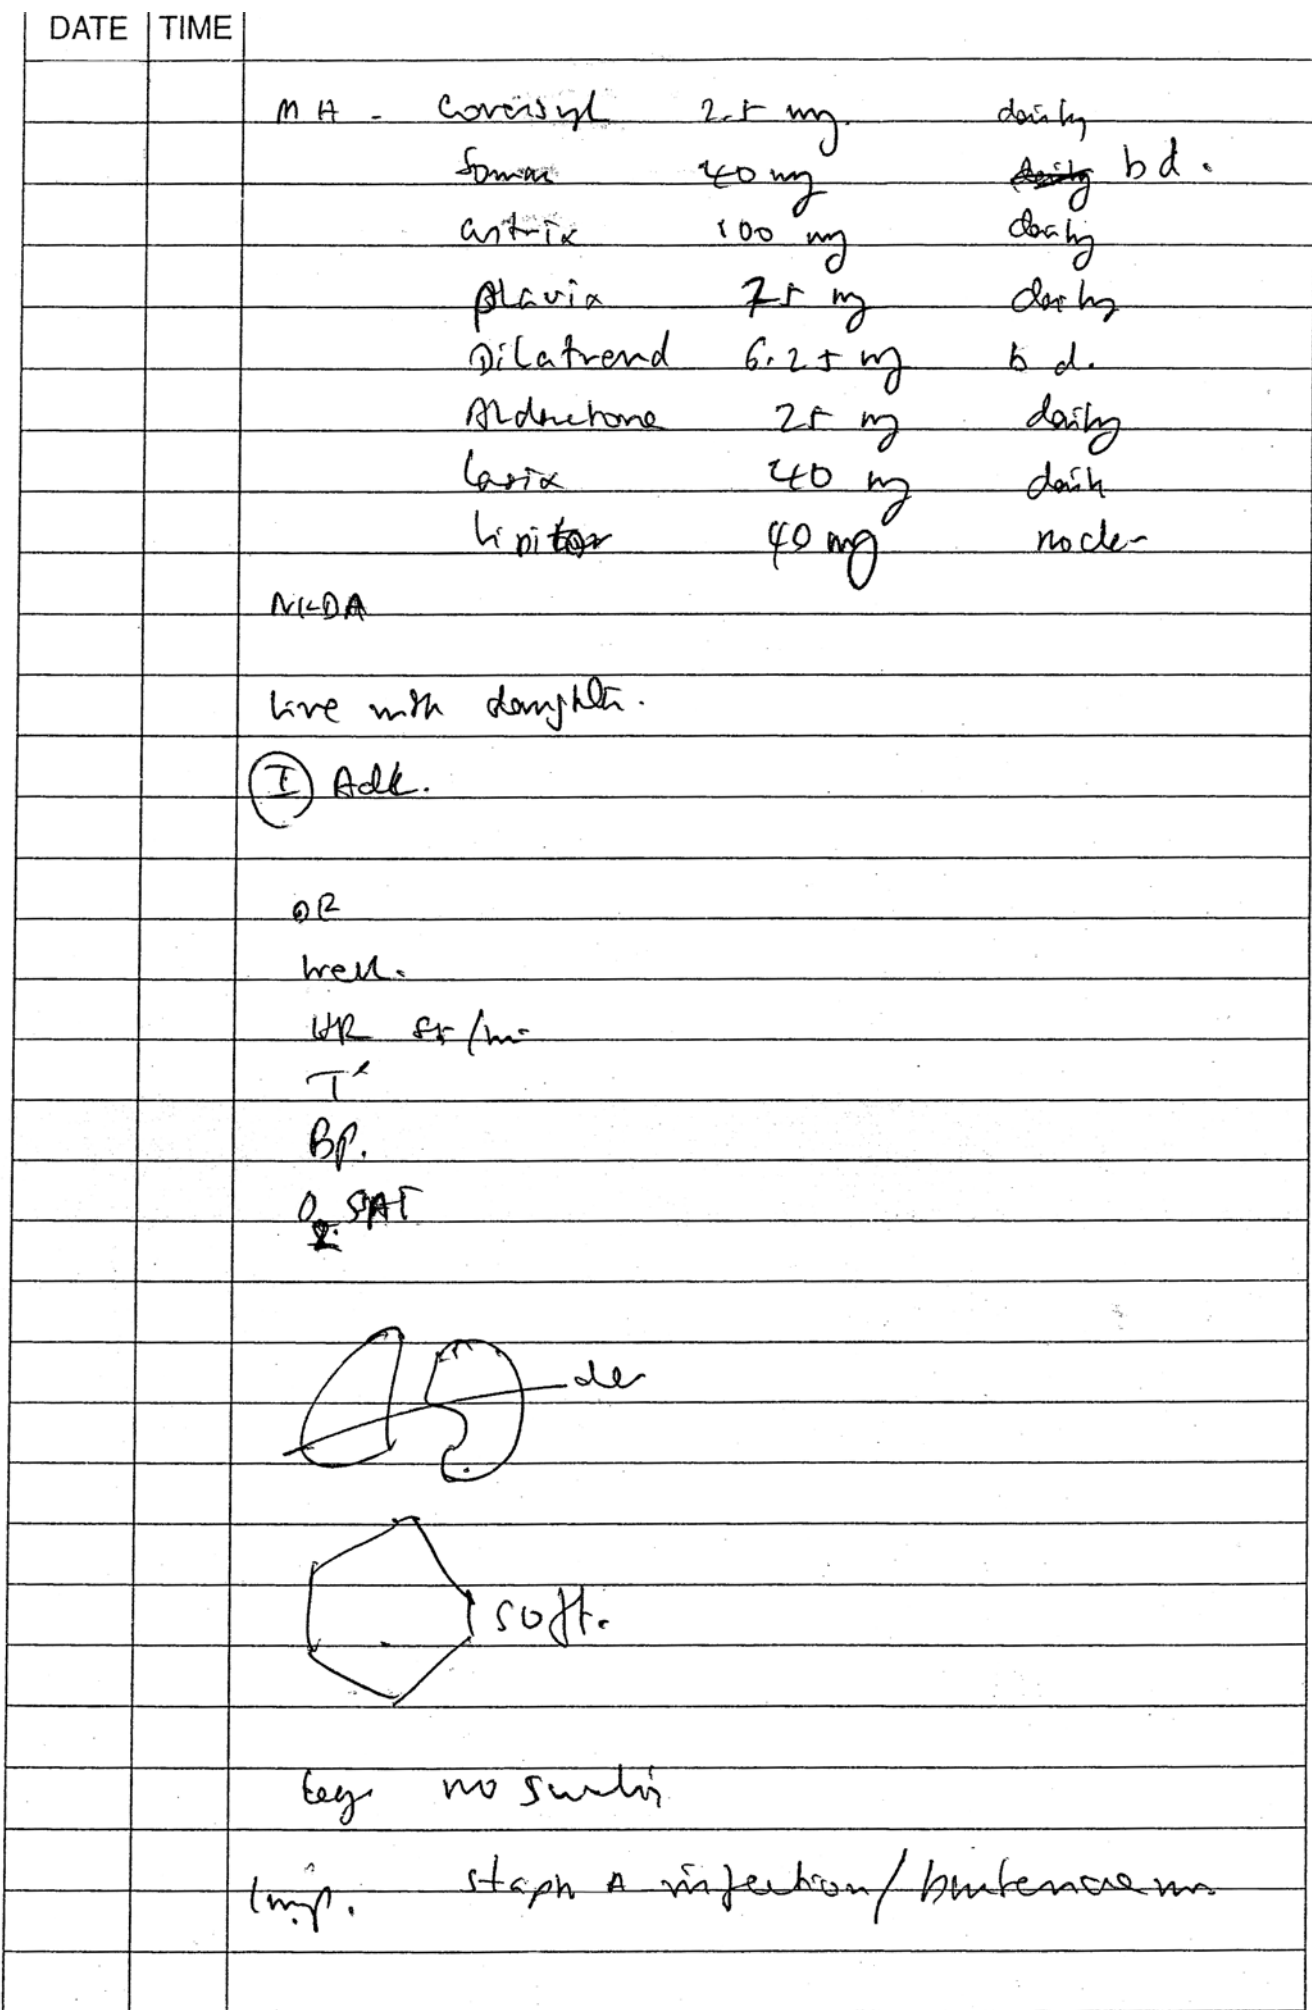 DATE TIME
MH - Coversyl 2.5 mg. daily
Somac 40 mg daily bd.
astrix 100 mg daily
plavix 75 mg daily
Dilatrend 6.25 mg bd.
Aldactone 25 mg daily
lasix 40 mg daily
lipitor 40 mg nocte
NKDA
Live with daughter.
(I) ADL.
OE
well.
HR 85/min
T°
BP.
O2 SAT
soft.
leg no swelling
Imp. staph A infection/